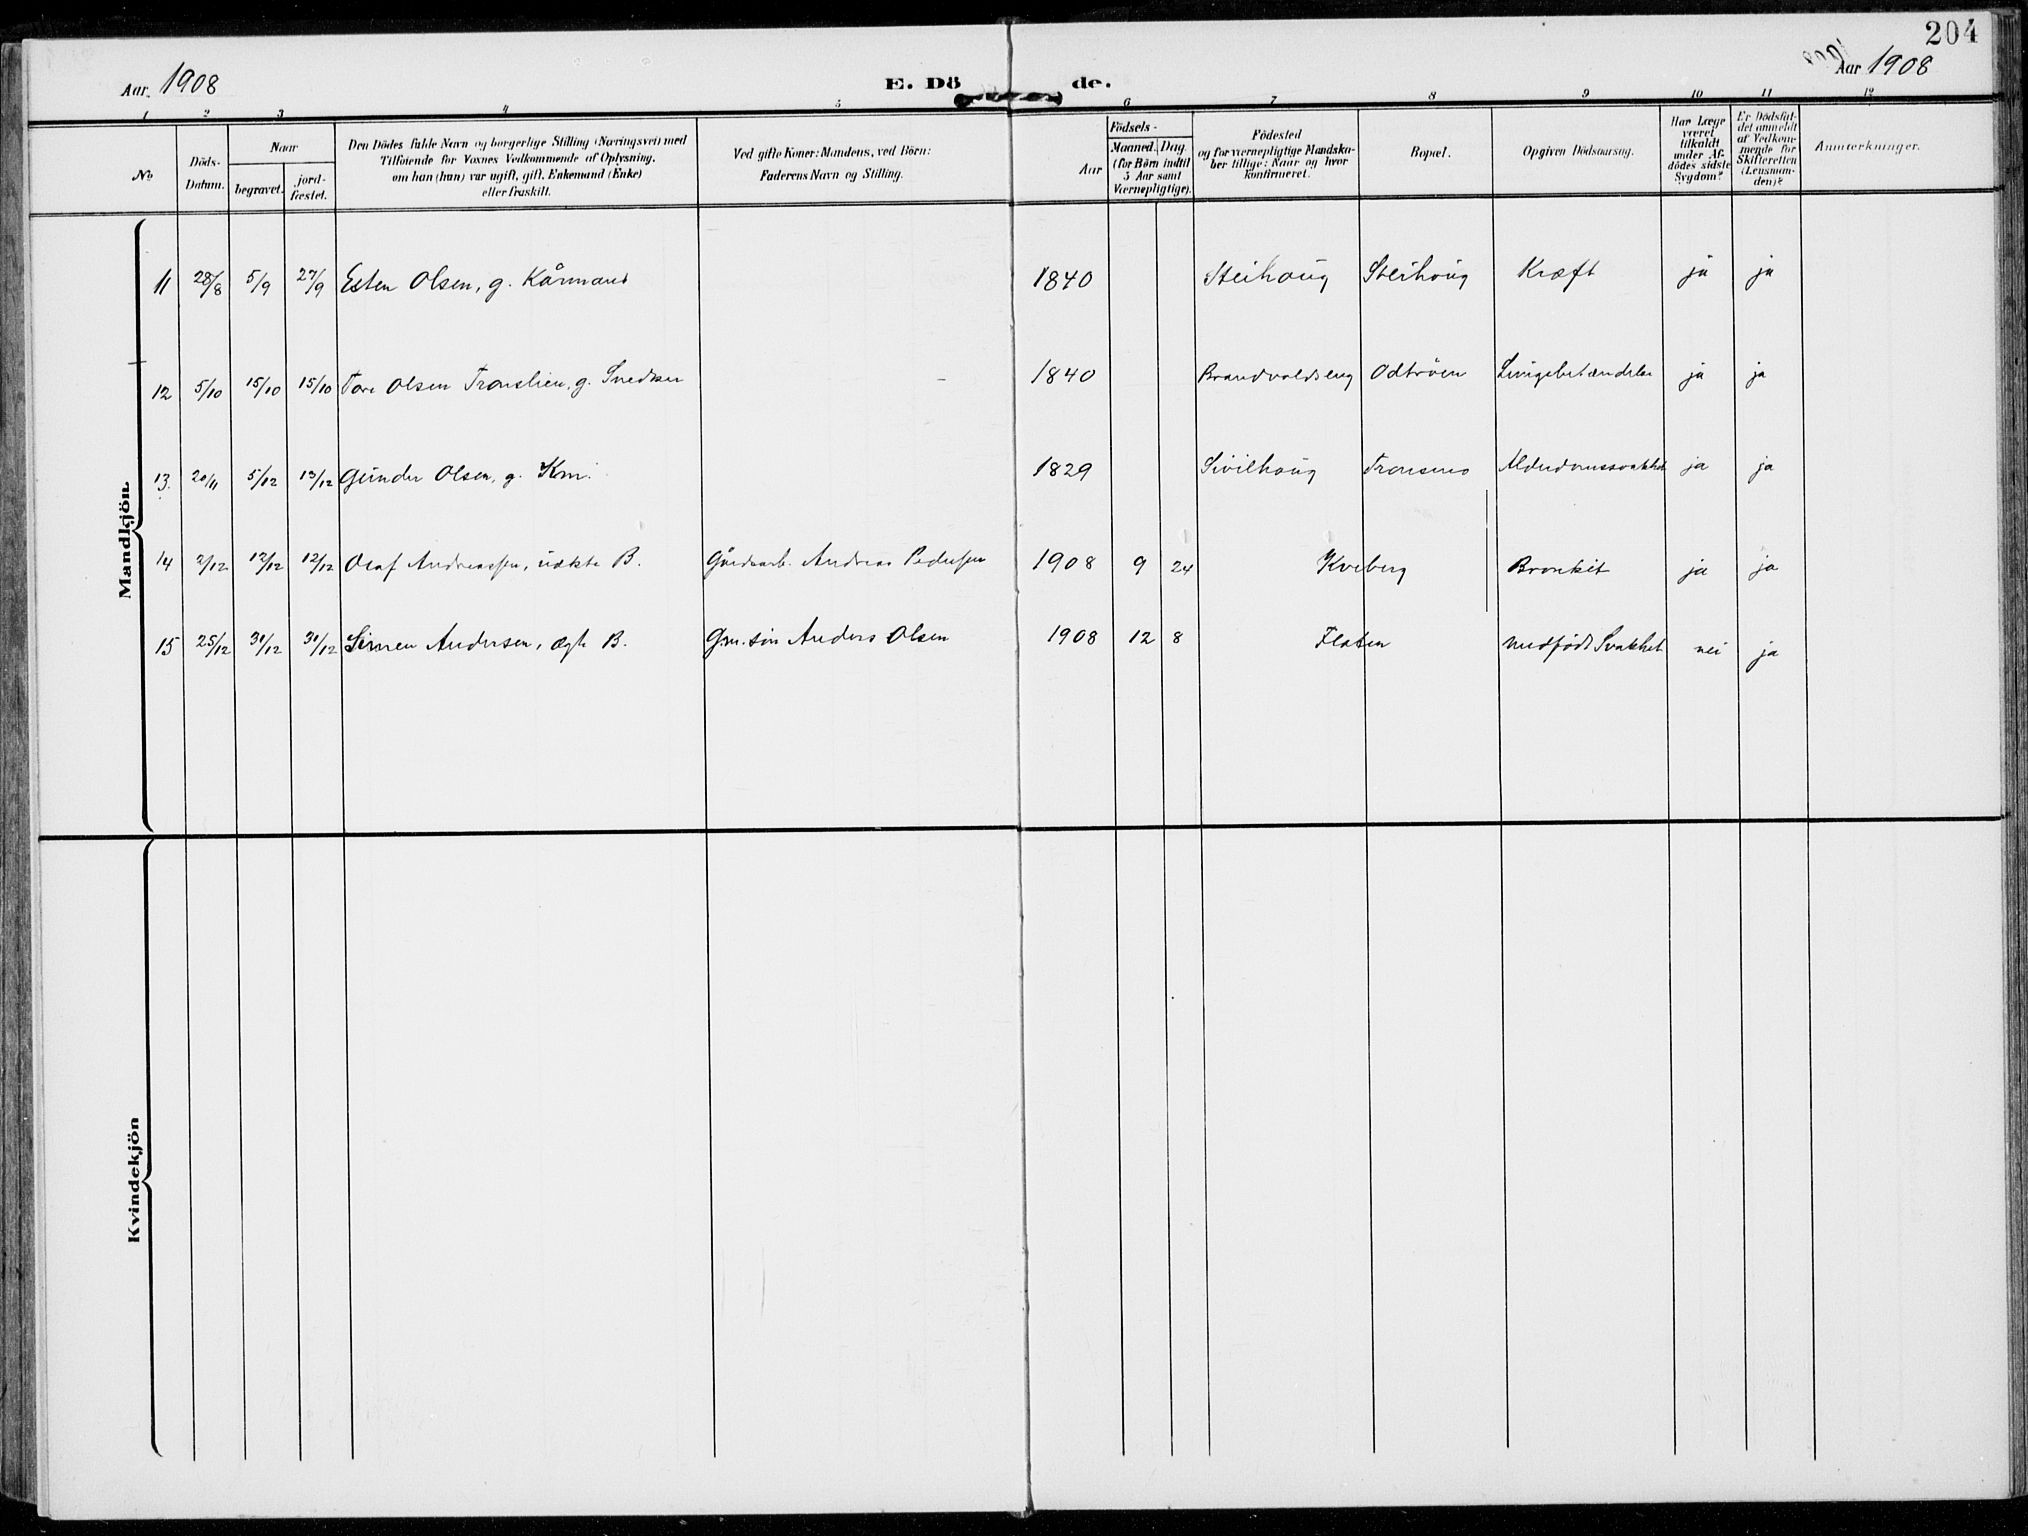 204
Aar 1908
E. Döde.
Aar 1908
1 2 3 4 5 6 7 8 9 10 11 12
No
Döds-Datum.
Naar
begravet.
jordfæstet.
Den Dödes fulde Navn og borgerlige Stilling (Næringsvei) med
Tilføiende for Voxnes Vedkommende af Oplysning,
om han (hun) var ugift, gift, Enkemand (Enke)
eller fraskilt.
Ved gifte Koner: Mandens, ved Börn:
Faderens Navn og Stilling.
Födsels-
Aar
Maaned. Dag.
(for Börn indtil
5 Aar samt
Værnepligtige).
Födested
og for værnepligtige Mandskaber tillige: Naar og hvor
konfirmeret.
Bopæl.
Opgiven Dödsaarsag.
Har Læge
været
tilkaldt
under Afdödes sidste
Sygdom?
Er Dödsfaldet anmeldt
af Vedkommende for
Skifteretten
(Lensmanden)?
Anmærkninger.
Mandkjön.
11 28/8 5/9 27/9 Esten Olsen, g. Kårmand 1840 Steihoug Steihoug Kræft ja ja
12 5/10 15/10 15/10 Tore Olsen Tronslien, g. Snedker 1840 Brandvoldseng Odtröen Lungebetændelse ja ja
13. 20/11 5/12 13/12 Gunder Olsen, g. Km. 1829 Sivilhoug Tronsmo Alderdomssvakhet ja ja
14 2/12 12/12 12/12 Olaf Andreassen, uækte B. Gårdarb. Andreas Pedersen 1908 9 24 Kveberg Bronkit ja ja
15 25/12 31/12 31/12 Simen Andersen, ægte B. Gm. sön Anders Olsen 1908 12 8 Flaten medfödt Svakhet nei ja
Kvindekjön